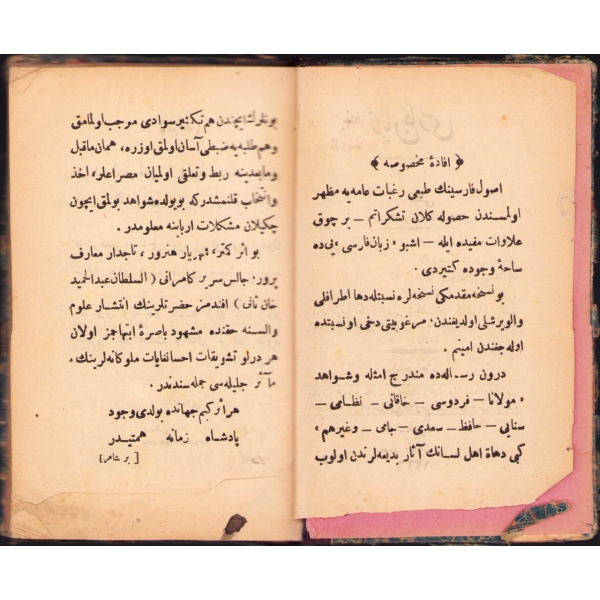 ﴿ افادهٔ مخصوصه ﴾
اصول فارسينك طبعى رغبات عامه يه مظهر
اولمسندن حصوله كلان تشكراتم – بر چوق
علاوات مفيده ايله – اشبو ، زبان فارسى ، يى ده
ساحهٔ وجوده كتيردى .
بو نسخه مقدمكى نسخه لره نسبتله دها اطرافلى
والويرشلى اولديغندن ، مرغوبيتى دخى او نسبتده
اوله جغندن امينم .
درون رساله ده مندرج امثله وشواهد
، مولانا – فردوسى – خاقانى – نظامى –
سنايى – حافظ – سعدى – جامى – وغيرهم ،
كبى دهاة اهل لسانك آثار بديعه لرندن اولوب
بونلرك ايچندن هم تكثير سوادى موجب اولمامق
وهم طلبه يه ضبطى آسان اولمق اوزره ، همان ماقبل
ومابعدينه ربط وتعلقى اوليان مصراعلر ، اخذ
وانتخاب قلنمشدر كه بويولده شواهد بولمق ايچون
چكيلان مشكلات اربابنه معلومدر .
بو اثر كمتر ، شهريار هنرور ، تاجدار معارف
پرور ، جالس سرير كامرانى ( السلطان عبد الحميد
خان ثانى ) افندمز حضرتلرينك انتشار علوم
والسنه حقنده مشهود باصرهٔ ابتهاجمز اولان
هر درلو تشويقات احسانغايات ملوكانه لرينك ،
مآثر جليله سى جمله سندندر .
هر اثر كيم جهانده بولدى وجود
پادشاه زمانه همتيدر
[ بر شاعر ]